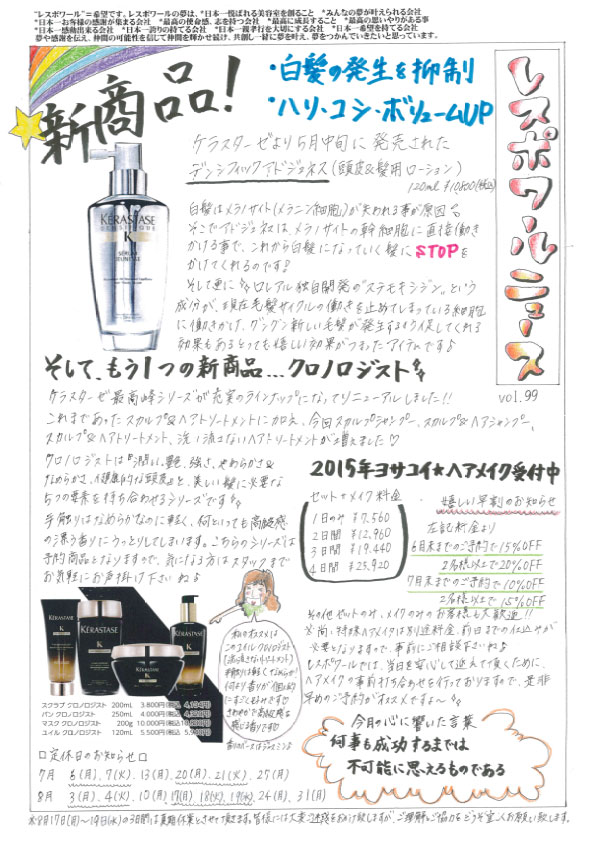 "レスポワール"＝希望です。レスポワールの夢は、*日本一悦ばれる美容室を創ること *みんなの夢が叶えられる会社
*日本一お客様の感謝が集まる会社 *最高の使命感、志を持つ会社 *最高に成長すること *最高の思いやりがある事
*日本一感動出来る会社 *日本一誇りの持てる会社 *日本一親孝行を大切にする会社 *日本一、希望を持てる会社
夢や感謝を伝え、仲間の可能性を信じて仲間を輝かせ続け、共創し一緒に夢を叶え、夢をつかんでいきたいと思っています。
新商品！
・白髪の発生を抑制
・ハリ・コシ・ボリュームUP
レスポワールニュース
vol.99
ケラスターゼより5月中旬に発売された
デンシフィックアドジュネス(頭皮&髪用ローション)
120ml ¥10,800(税込)
KÉRASTASE
DENSIFIQUE
K
SÉRUM
JEUNESSE
白髪はメラノサイト(メラニン細胞)が失われる事が原因
そこでアドジュネスは、メラノサイトの幹細胞に直接働き
かける事で、これから白髪になっていく髪にSTOPを
かけてくれるのです!
そして更に ロレアル独自開発の"ステモキシジン"という
成分が、現在毛髪サイクルの働きを止めてしまっている細胞
に働きかけ、グングン新しい毛髪が発生するよう促してくれる
効果もあるとっても嬉しい効果がつまったアイテムです♪
そして、もう1つの新商品…クロノロジスト
ケラスターゼ最高峰シリーズが充実のラインナップになってリニューアルしました!!
これまであったスカルプ&ヘアトリートメントに加え、今回スカルプシャンプー、スカルプ&ヘアシャンプー、
スカルプ&ヘアトリートメント、洗い流さないヘアトリートメントが増えました♡
クロノロジストは『潤い、艶、強さ、やわらかさ&
なめらかさ、健康的な頭皮』と、美しい髪に必要な
5つの要素を持ち合わせるシリーズです
手触りはなめらかなのに軽く、何といっても高級感
の漂う香りにうっとりしてしまいます。こちらのシリーズは
予約商品となりますので、気になる方はスタッフまで
お気軽にお声掛け下さいね♪
2015年ヨサコイ★ヘアメイク受付中
セット+メイク料金
1日のみ ¥7,560
2日間 ¥12,960
3日間 ¥19,440
4日間 ¥25,920
嬉しい早割のお知らせ
左記料金より
6月末までのご予約で15%OFF
2名様以上で20%OFF
7月末までのご予約で10%OFF
2名様以上で15%OFF
その他セットのみ、メイクのみのお客様も大歓迎!!
※尚、特殊ヘアメイクは別途料金、前日までの仕込みが
必要となりますので、事前にご相談下さいね♪
レスポワールでは、当日を安心して迎えて頂くために、
ヘアメイクの事前打ち合わせを行っておりますので、是非
早めのご予約がオススメですよ〜
KÉRASTASE
KÉRASTASE
KÉRASTASE
スクラブ クロノロジスト 200mL 3,800円(税込 4,104円)
バン クロノロジスト 250mL 4,000円(税込 4,320円)
マスク クロノロジスト 200g
ユイル クロノロジスト 120mL 5,500円(税込 5,940円)
私のオススメは
このユイルクロノロジスト
(洗い流さないトリートメント)
手触りは軽くなめらか
何より香りが個人的
にすごく好みです♡
さわやかで高級感を
感じる香りです
香りのベースはジャスミン♪
今月の心に響いた言葉
何事も成功するまでは
不可能に思えるものである
□定休日のお知らせ□
7月 6(月)、7(火)、13(月)、20(月)、21(火)、27(月)
8月 3(月)、4(火)、10(月)、17(月)、18(火)、19(水)、24(月)、31(月)
※8月17日(月)〜19日(水)の3日間は夏期休業とさせて頂きます。皆様には大変ご迷惑をお掛け致しますが、ご理解とご協力をどうぞ宜しくお願い致します。